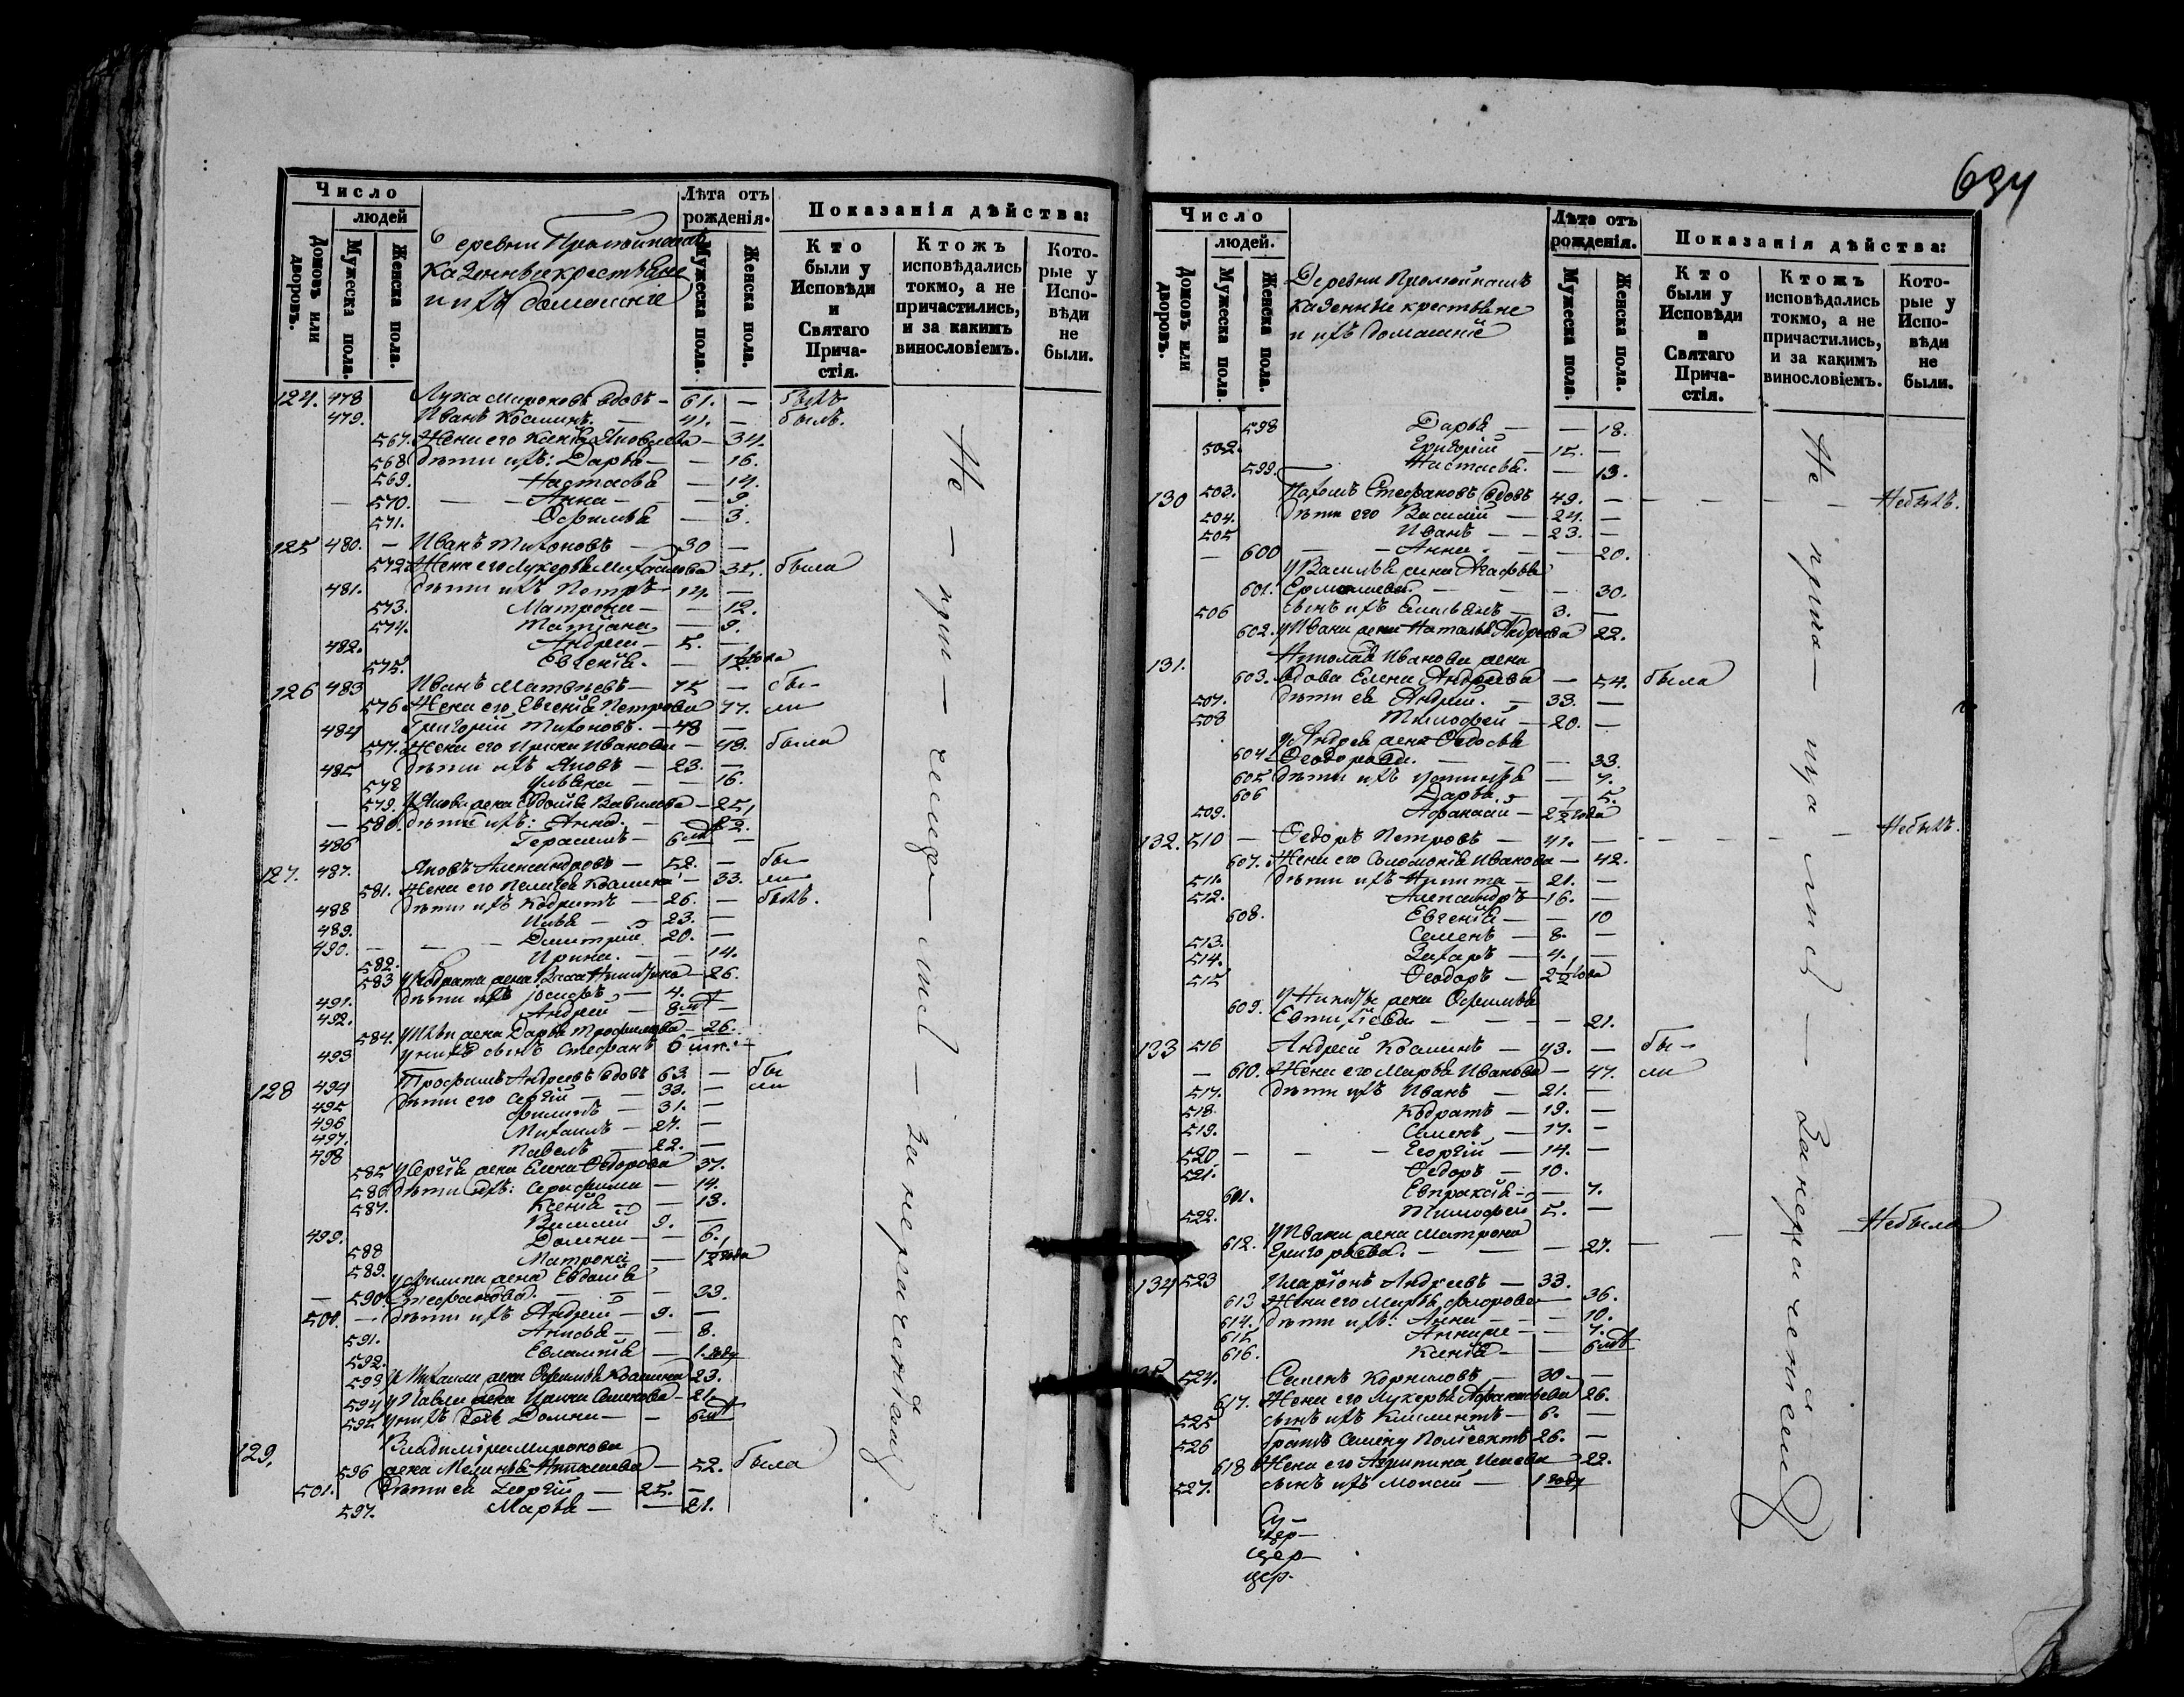 Число
людей
Домовъ или дворовъ.
Мужеска пола.
Женска пола.
Казенные крестьяне
и ихъ домашніе
Лѣта отъ рожденія.
Мужеска пола.
Женска пола.
Показанія дѣйства:
Кто были у Исповѣди и Святаго Причастія.
Ктожъ исповѣдались токмо, а не причастились, и за какимъ винословіемъ.
Которые у Исповѣди не были.
124. 478 Лука Мироновъ вдовъ — 61. — былъ
479. Иванъ Косминъ. — 41. — былъ.
567. Жена его Ксенія Яковлева — 34.
568 дѣти ихъ: Дарья — — 16.
569. Настасья — 14.
570. — Анна — — 9.
571. Офимья — 3.
125 480. — Иванъ Тихоновъ — 30 —
572. Жена его Лукерья Михайлова 35. была
481. дѣти ихъ Петръ — 14. —
573. Матрона — — 12.
574. Татіана — 9.
482. Андрей — 5. —
575. Евгенія. — 1½ года
126 483 Иванъ Матвѣевъ — 75 — бы-
576. Жена его Евгенія Петрова 77. ли
484 Григорій Тихоновъ. — 48 —
577. Жена его Ирина Иванова — 48. была
485 дѣти ихъ Яковъ — 23. —
578 Ульяна — — 16.
579. у Якова жена Евдокія Вавилова — 25,
580. дѣти ихъ: Анна. — 2.
486 Герасимъ — 6 м —
127. 487. Яковъ Александровъ — 52. — бы-
581. Жена его Пелагея Козмина — 33. ли
488 дѣти ихъ Кодратъ — 26. — былъ.
489. Илья — 23. —
490. — Дмитрій 20. —
582. Ирина. — — 14.
583 у Кодрата жена Васса Никитина — 26.
491. дѣти ихъ Іосифъ — 4. —
492. Андрей — 8 м —
584. у Ильи жена Дарья Трофимова — 26.
493 у нихъ сынъ Стефанъ 6 м. —
128 494 Трофимъ Андреевъ вдовъ 63. — бы
495 дѣти его Сергій — 33. — ли
496 Филипъ — 31. —
497. Михаилъ — 27. —
498 Павелъ — 22. —
585 у Сергія жена Елена Федорова 37.
586 дѣти ихъ: Серафима — 14.
587. Ксенія — — 13.
499. Василій 9. —
588 Домна — — 6.
589. Матрона — 1½ года
у Филипа жена Евдокія
590 Стефанова. — — 33.
500. — дѣти ихъ Андрей — 9. —
591. Анисья — — 8.
592. Евлампія — 1. году
593 у Михаила жена Офимья Козмина 23.
594 у Павла жена Ирина Семенова — 21.
595 у нихъ дочь Домна — — 6 м
129. Владиміра Миронова
596 жена Меланья — 52. была
501. дѣти ея Георгій — 25. —
597. Марья — — 21.
Не — при — чащались — за нерачениемъ.
634
Число
людей.
Домовъ или дворовъ.
Мужеска пола
Женска пола.
Казенные крестьяне
и ихъ домашніе
Лѣта отъ рожденія.
Мужеска пола.
Женска пола.
Показанія дѣйства:
Кто были у Исповѣди и Святаго Причастія.
Ктожъ исповѣдались токмо, а не причастились, и за какимъ винословіемъ.
Которые у Исповѣди не были.
598 Дарья — — 18.
502. Григорій — 15. —
599. Настасья. — 13.
130 503. Пахомъ Стефановъ вдовъ 49. — — — — Не былъ.
504. дѣти его Василій — 24. —
505 Иванъ — — 23. —
600 — — Анна. — — 20.
у Василья жена Агафья
601. Ермолаева. — — — 30.
506 сынъ ихъ Емельянъ — 3. —
602. у Ивана жена Наталья Андреева 22.
131. Николая Иванова жена
603. вдова Елена Андреева — 54. была
507. дѣти ея Андрей. — 33. —
508 Тимофей — 20. —
у Андрея жена Федосья
604. Феодорова. — — — 33.
605 дѣти ихъ Устинья — 7.
606 Дарья. — — 5.
509. Афанасій — 2½ года
132. 510 — Федоръ Петровъ — 41. — — — — — Не былъ.
607. Жена его Соломонія Иванова — 42.
511. дѣти ихъ Никита — 21. —
512. Александръ — 16. —
608. Евгенія — — 10
513. Семенъ — 8. —
514. Захаръ — 4. —
515 Феодоръ — 2½ года
у Никиты жена Офимья
609. Евтихіева — — — 21.
133 516 Андрей Козминъ — 43. — бы-
— 610. Жена его Марья Иванова — 47. ли
517. дѣти ихъ Иванъ — 21. —
518. Кодратъ — 19. —
519. Семенъ — 17. —
520 — — — Георгій — 14. —
521. Федоръ — 10.
601. Евпраксія — — 7.
522. Тимофей 5. —
у Ивана жена Матрона
612. Григорьева. — — — 27. — — Не была
134 523 Иларіонъ Андреевъ — 33.
613 Жена его Марья Флорова — 36.
614. дѣти ихъ: Анна — — — 10.
615 — — 7.
616. Ксенія — — 6 м
524. Семенъ Корниловъ — 30 —
617. Жена его Лукерья Афанасьева 26.
525 сынъ ихъ Климентъ — 6. —
526 братъ Семену Поліевктъ 26. —
618 Жена его Агрипина Исаева 22.
527. сынъ ихъ Мокій — 1 году
Не прича — ща — лись — за нераченіемъ